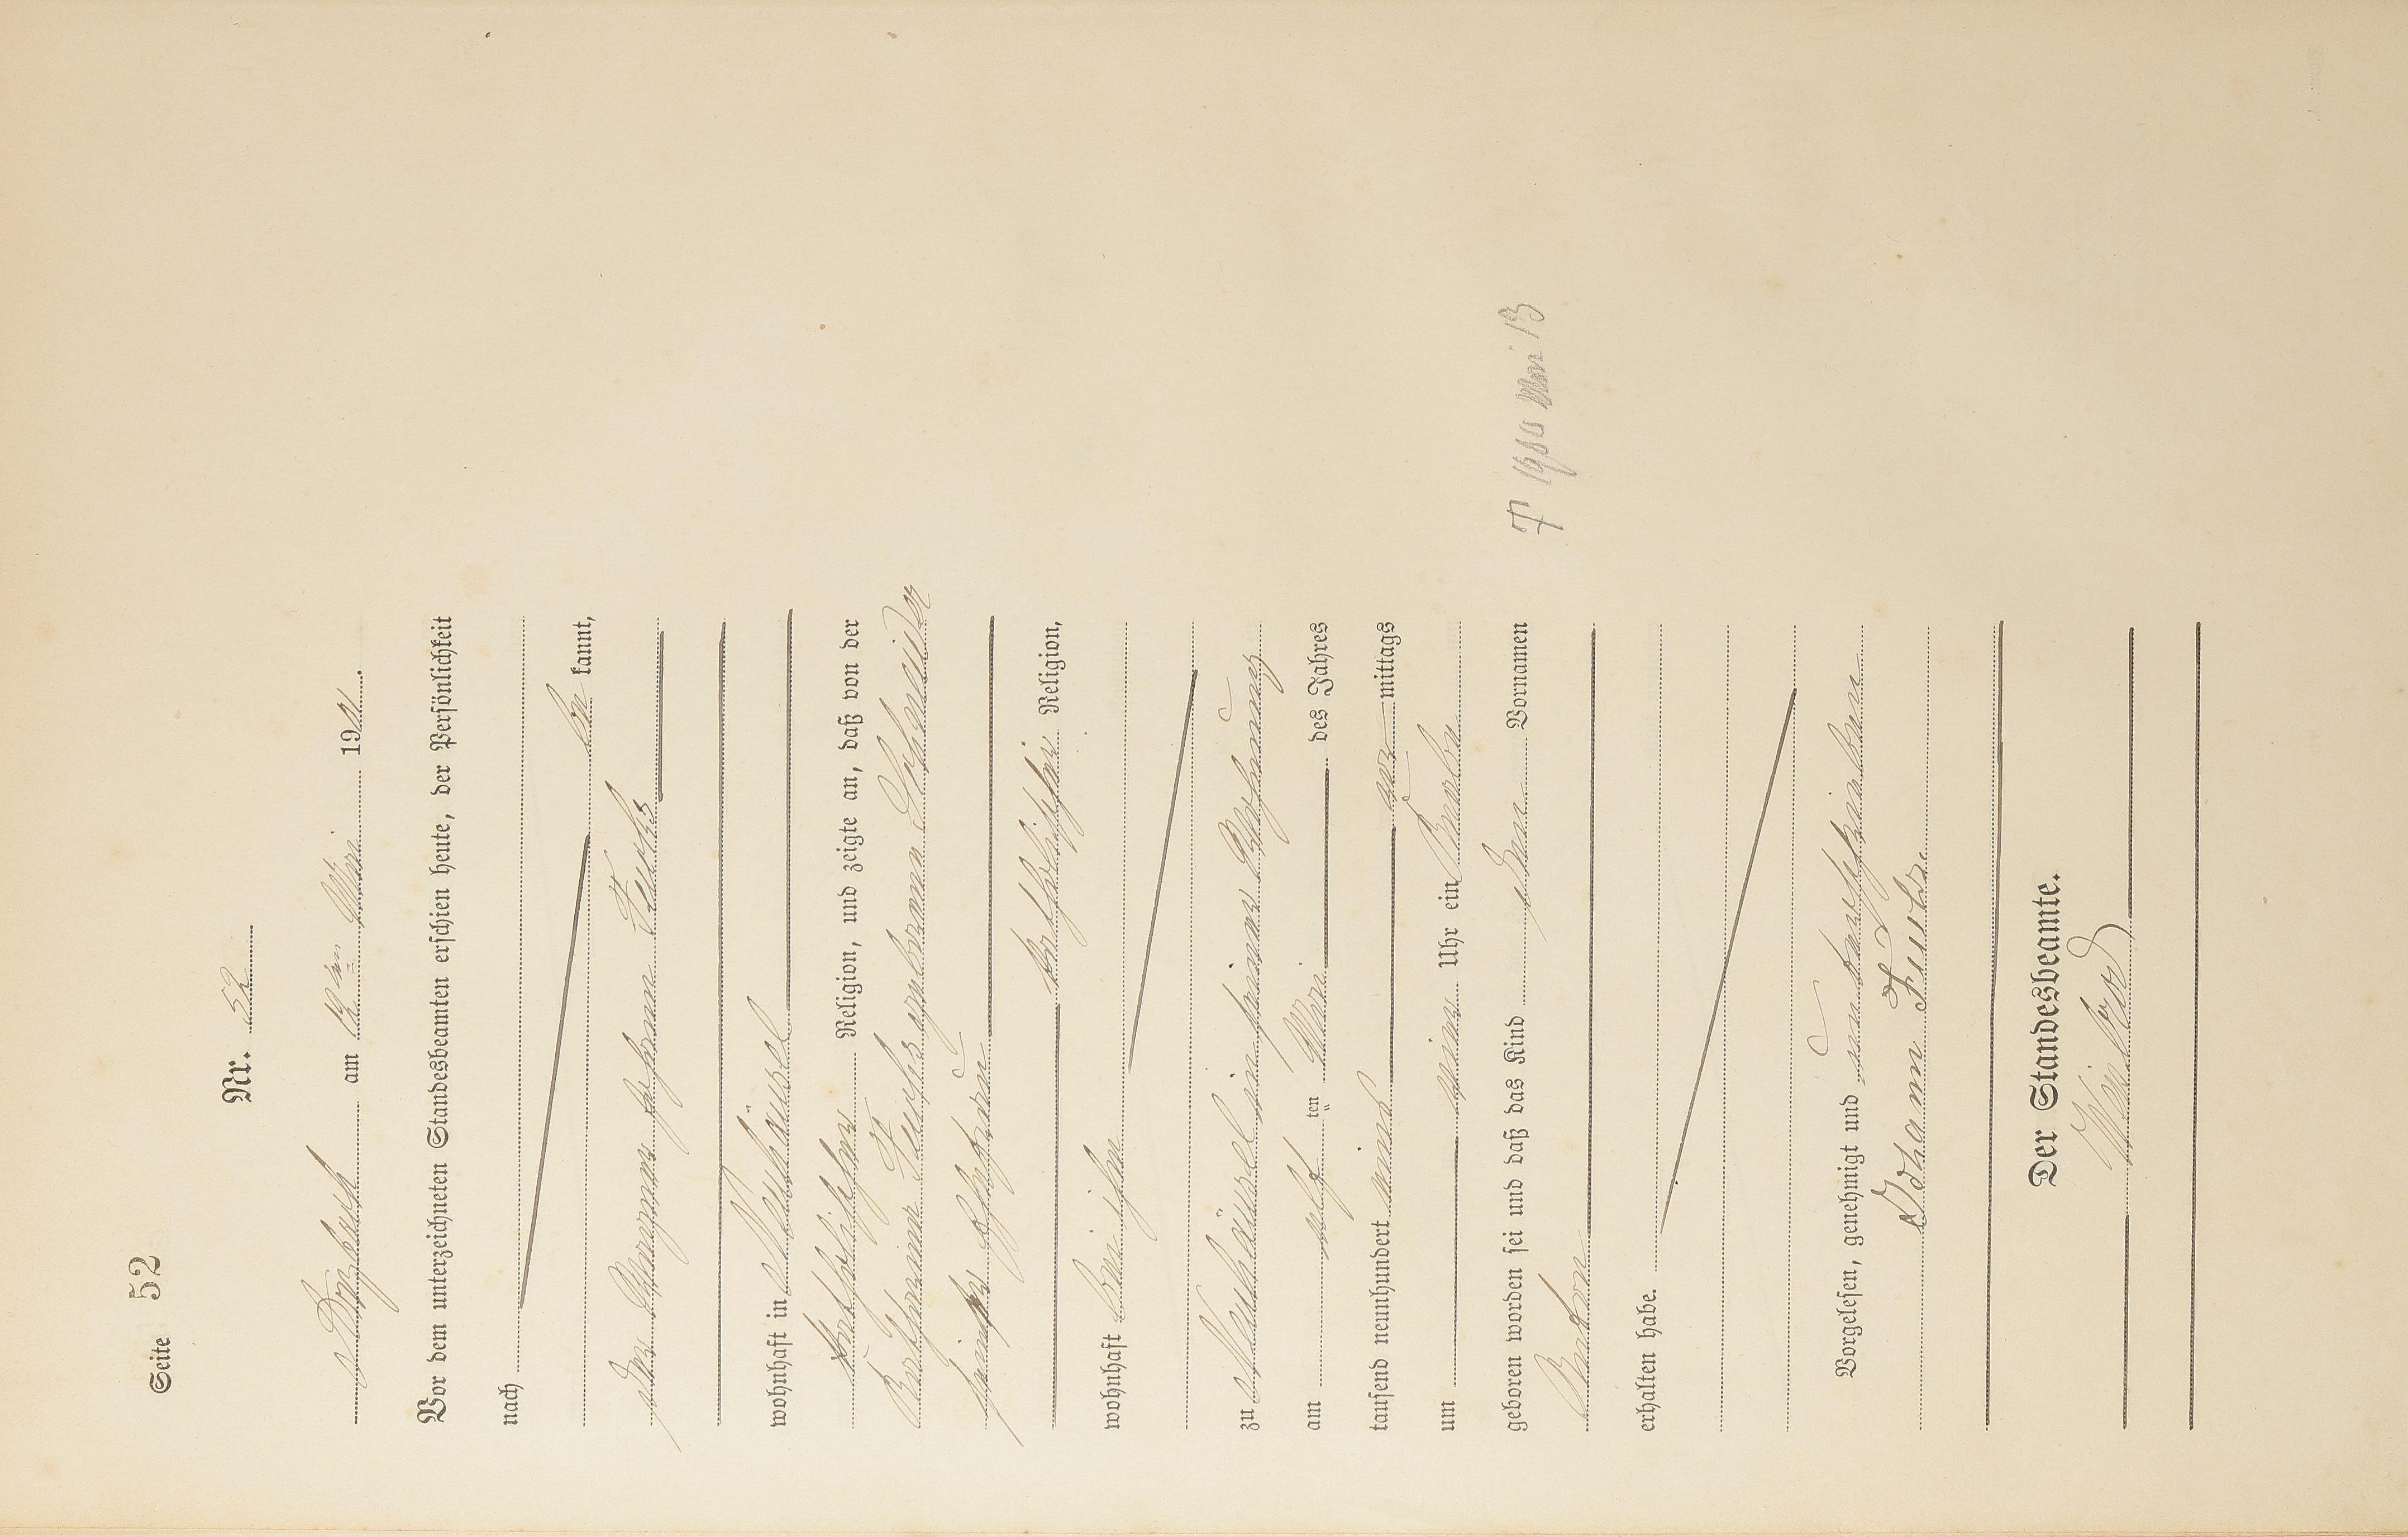 Seite 52
Nr. 52
Arzbach am 12ten Mai 1901.
Vor dem unterzeichneten Standesbeamten erschien heute, der Persönlichkeit
nach
be kannt,
der Bergmann Johann Fuchs
wohnhaft in Neuhäusel
katholischer Religion, und zeigte an, daß von der
Katharina Fuchs geborenen Schneider
seiner Ehefrau
katholischer Religion,
wohnhaft bei ihm
zu Neuhäusel in seiner Wohnung
am elf ten Mai des Jahres
tausend neunhundert eins vor mittags
um Uhr ein Knabe
geboren worden sei und daß das Kind den Vornamen
Anton
† Mai 13
erhalten habe.
Vorgelesen, genehmigt und unterschrieben
Johann Fuchs.
Der Standesbeamte.